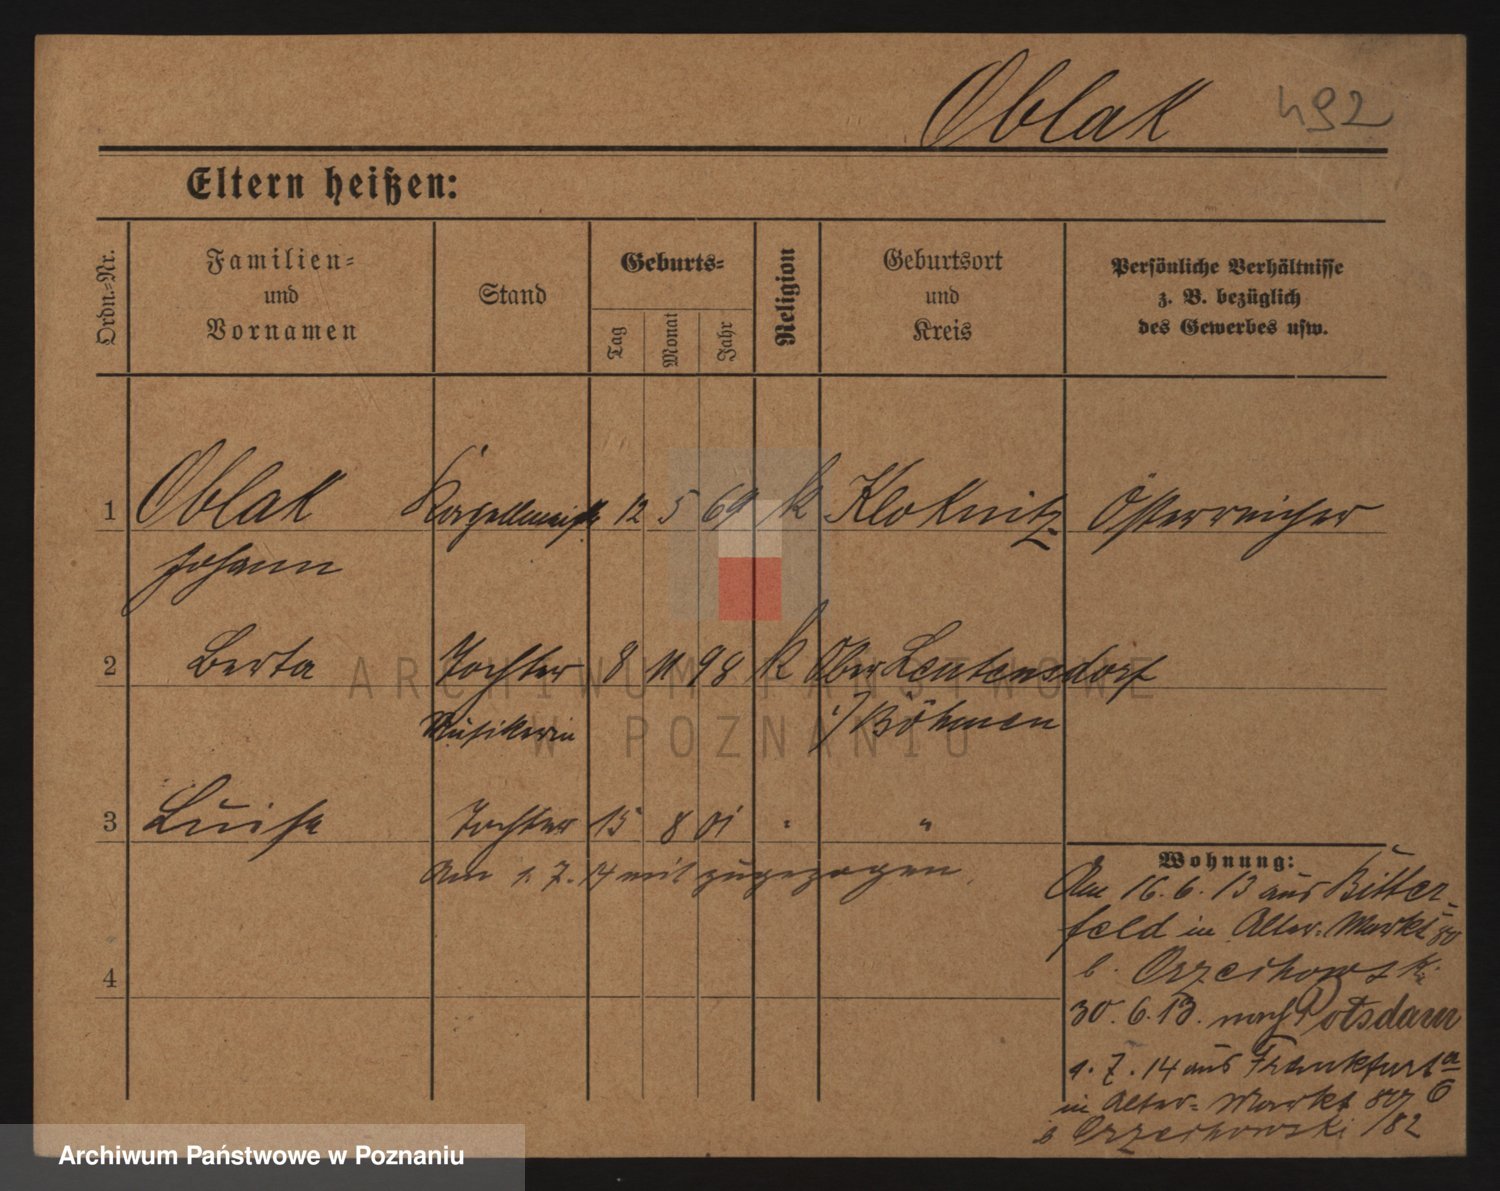 Oblak 492
Eltern heißen:
Ordn.-Nr.
Familien-
und
Vornamen
Stand
Geburts-
Tag
Monat
Jahr
Religion
Geburtsort
und
Kreis
Persönliche Verhältnisse
z. B. bezüglich
des Gewerbes usw.
1 Oblak Kapellmeistr 12 5 69 k Kloknitz Österreicher
Johann
2 Berta Tochter 8 11 98 k Ober Leutensdorf
Musikerin i/Böhmen
3 Luise Tochter 15 8 01 " "
Am 1. 7. 14 mit zugezogen
Wohnung:
Am 16. 6. 13 aus Bitter-
feld in Alter-Markt 80
b. Orzechowski
4
30. 6. 13. nach Potsdam
1. 7. 14 aus Frankfurt a
O
in Alter-Markt 80/
b Orzechowski 82
ARCHIWUM PAŃSTWOWE
W POZNANIU
Archiwum Państwowe w Poznaniu